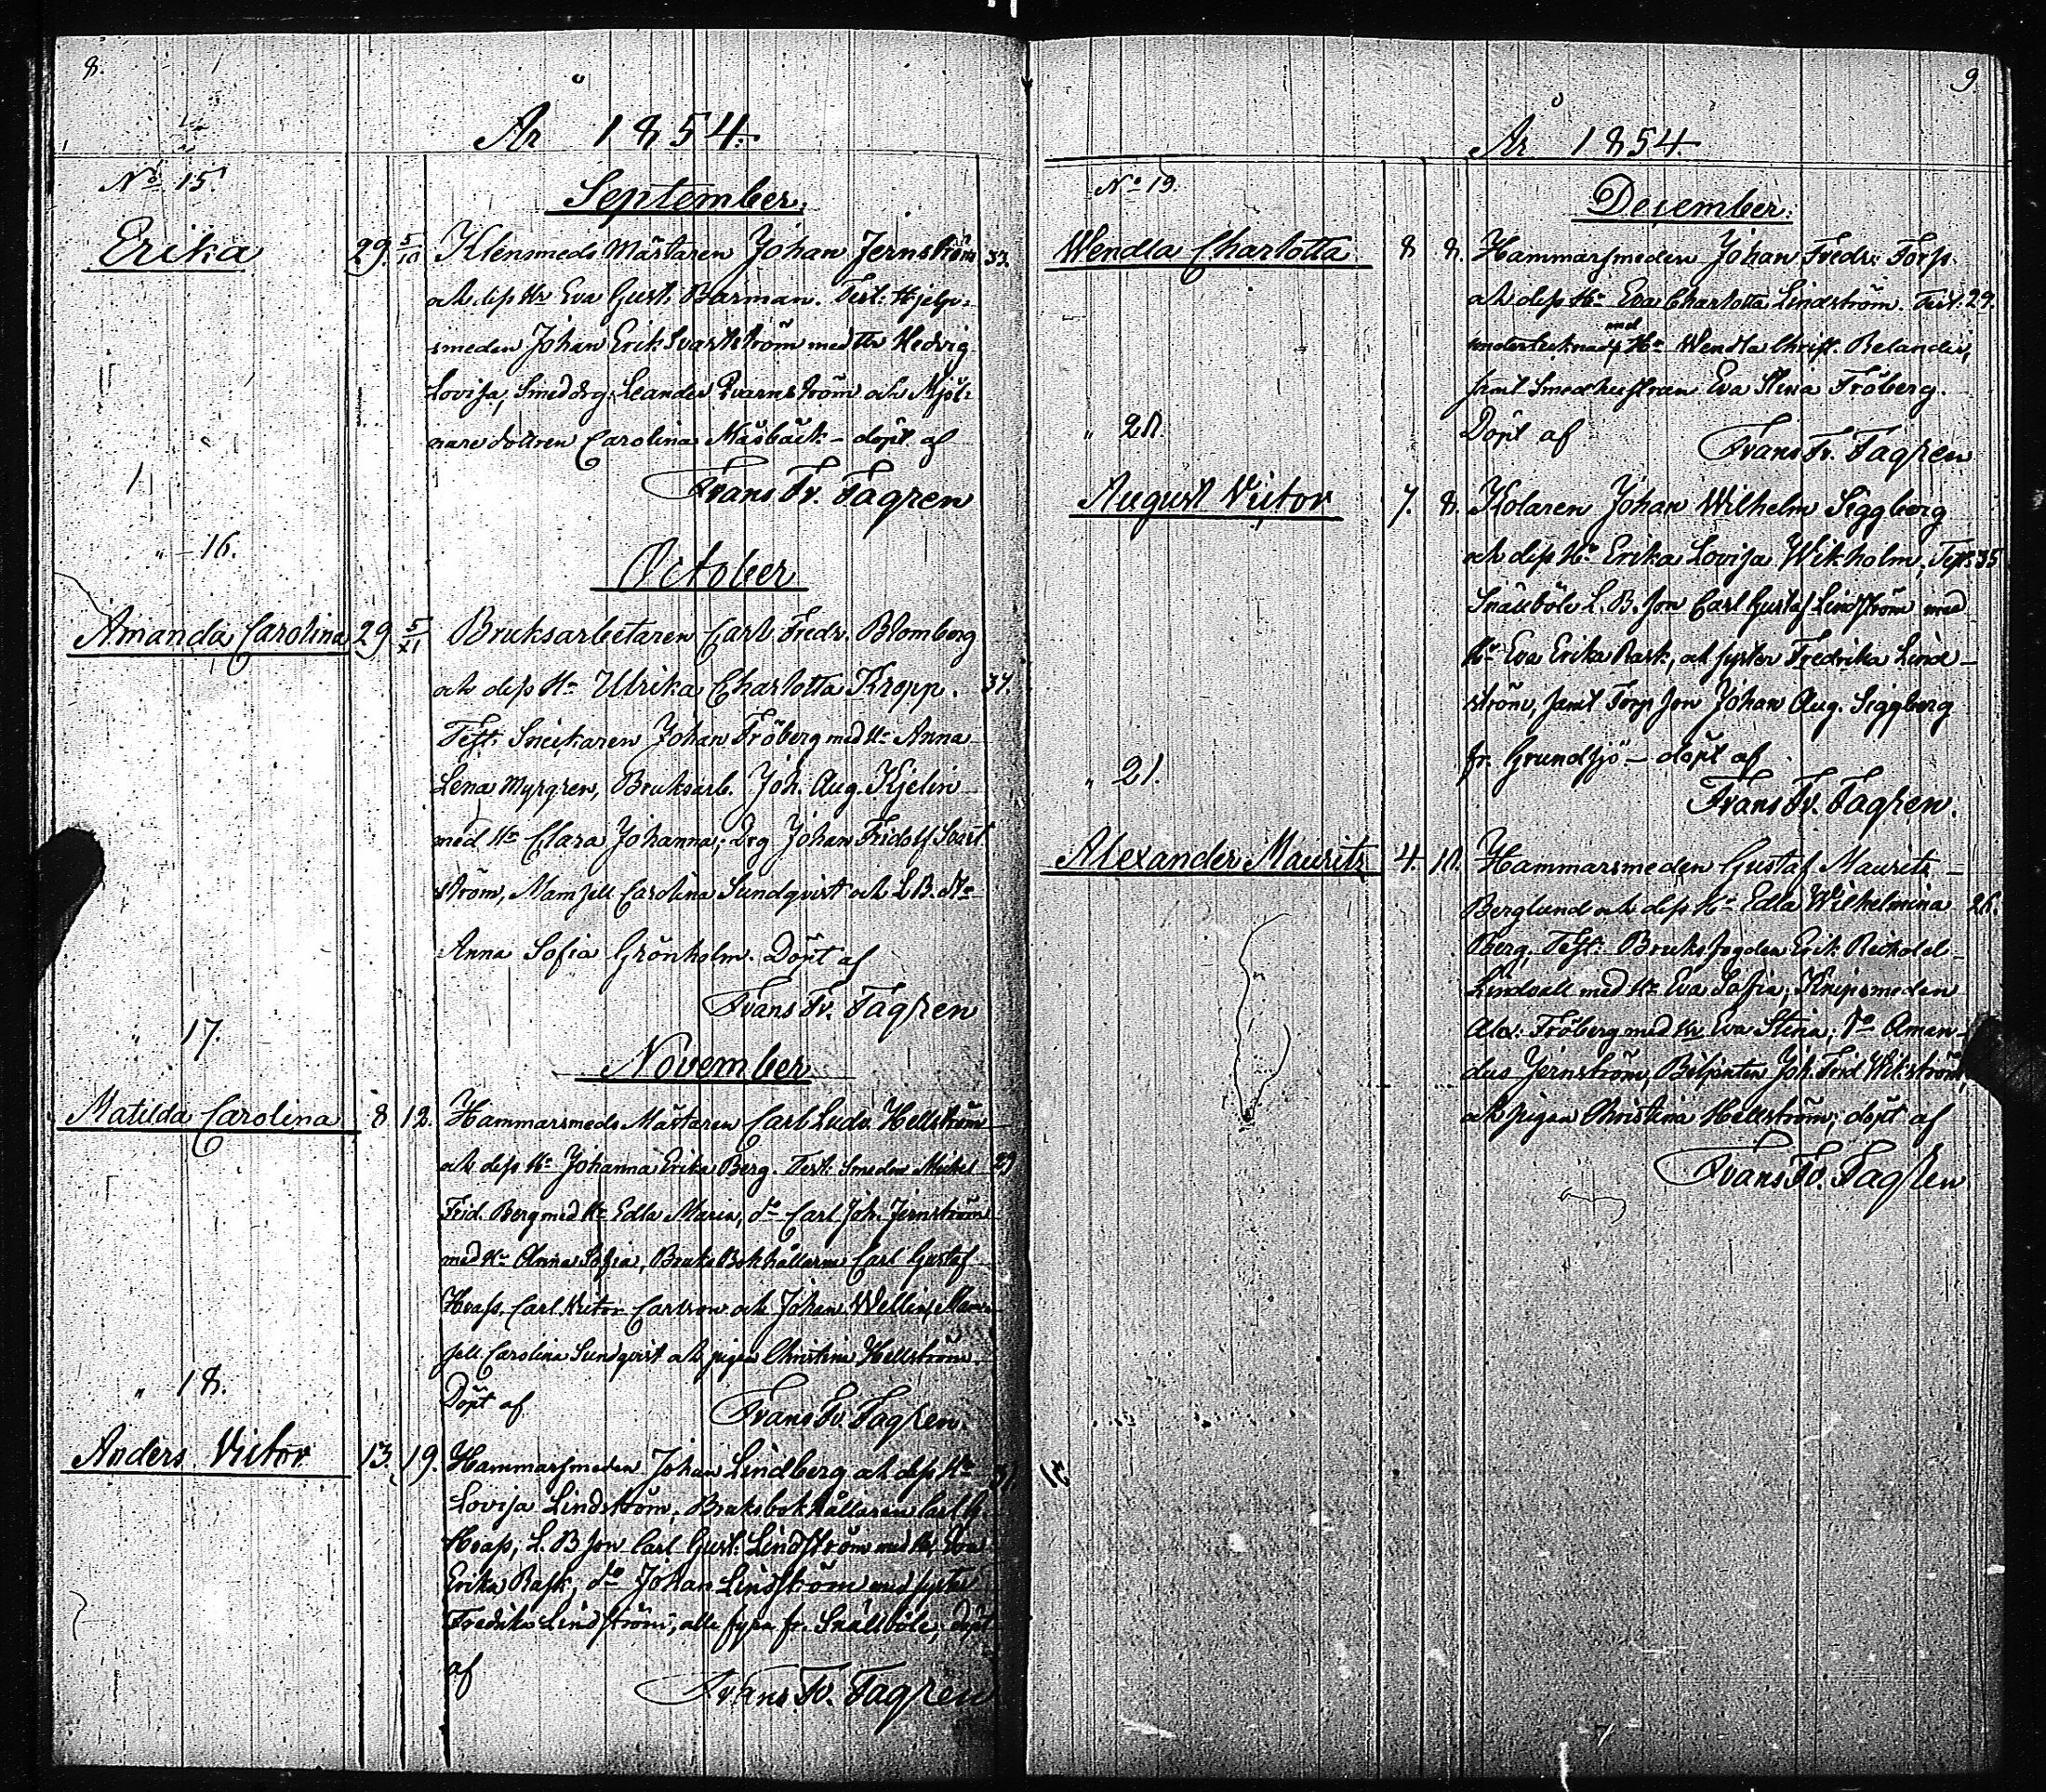 8.
År 1854.
No 15.
September.
Erika 29. 5/10 Klensmeds Mästaren Johan Jernström 33.
och dess Hu Eva Gust. Barman. Test: Hjelp-
smeden Johan Erik Svartström med Hu Hedvig
Lovisa, Smeddrg. Leander Qvarnström och Mjöl-
naredottren Carolina Måsbäck – döpt af
Frans Fr. Fagren
" 16.
October
Amanda Carolina 29 5/11 Bruksarbetaren Carl Fredr. Blomberg
och dess Hu Ulrika Charlotta Kropp. 34.
Test. Snickaren Johan Fröberg med Hu Anna
Lena Myrgren, Bruksarb. Joh. Aug. Kjelin
med Hu Clara Johanna; Drg Johan Fridolf Svart
ström, Mamsell Carolina Sundqvist och L.B. Hu
Anna Sofia Grönholm. Döpt af
Frans Fr. Fagren
" 17.
November
Matilda Carolina 8 12. Hammarsmeds Mästaren Carl Ludv. Hellström
och dess Hu Johanna Erika Berg. Test: Smeden Mickel 29
Frid. Berg med Hu Edla Maria, do Carl Joh. Jernström
med Hu Anna Sofia, Bruks Bokhållarne Carl Gustaf
Carl Victor Carlson och Johan Wellin, Mam-
sell Carolina Sundqvist och pigan Christina Hellström.
" 18.
Döpt af Frans Fr. Fagren.
Anders Victor 13. 19. Hammarsmeden Johan Lindberg och dess Hu 31.
Lovisa Lindström. Bruksbokhållaren Carl G.
L.B.son Carl Gust. Lindström med Hu Eva
Erika Rask, do Johan Lindström med syster
Fredrika Lindström, alla fyra fr. Snällböle, döpt
af
Frans Fr. Fagren
9.
År 1854.
No 19.
December.
Wendla Charlotta 8 8. Hammarsmeden Johan Fredr. Forss.
och dess Hu Eva Charlotta Lindström. Test. 29.
med
undertecknad Hu Wendla Christ. Belander,
samt Smedhustrun Eva Stina Fröberg.
" 20.
Döpt af Frans Fr. Fagren
August Victor 7. 8. Kolaren Johan Wilhelm Siggberg
och dess Hu Erika Lovisa Wikholm, Test. 35
Snällböle L.B.son Carl Gustaf Lindström med
Hu Eva Erika Rask, och syster Fredrika Lind-
ström, samt Torp son Johan Aug. Siggberg
fr. Grundsjö – döpt af
" 21.
Frans Fr. Fagren.
Alexander Mauritz 4. 10. Hammarsmeden Gustaf Mauritz
Berglund och dess Hu Edla Wilhelmina 26.
Berg. Test: Bruksfogden Erik Reinhold
Lindvall med Hu Eva Sofia; Knipsmeden
Alex. Fröberg med Hu Eva Stina; do Aman-
dus Jernström, Betjenten Joh. Frid. Wikström,
och pigan Christina Hellström; döpt af
Frans Fr. Fagren